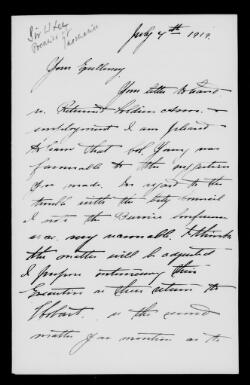 Sir W Lee
Premier of
Tasmania
July 4th 1919.
Your Excellency
Your letter
re Returned Soldiers Assn. &
employment I am pleased
to learn that Col. was
favourable to the
you made. In regard to the
trouble with the City Council
I was
very reasonable. I think
the matter will be adjusted
I propose interviewing their
Executive on their return to
Hobart. in the
matter you mention as to